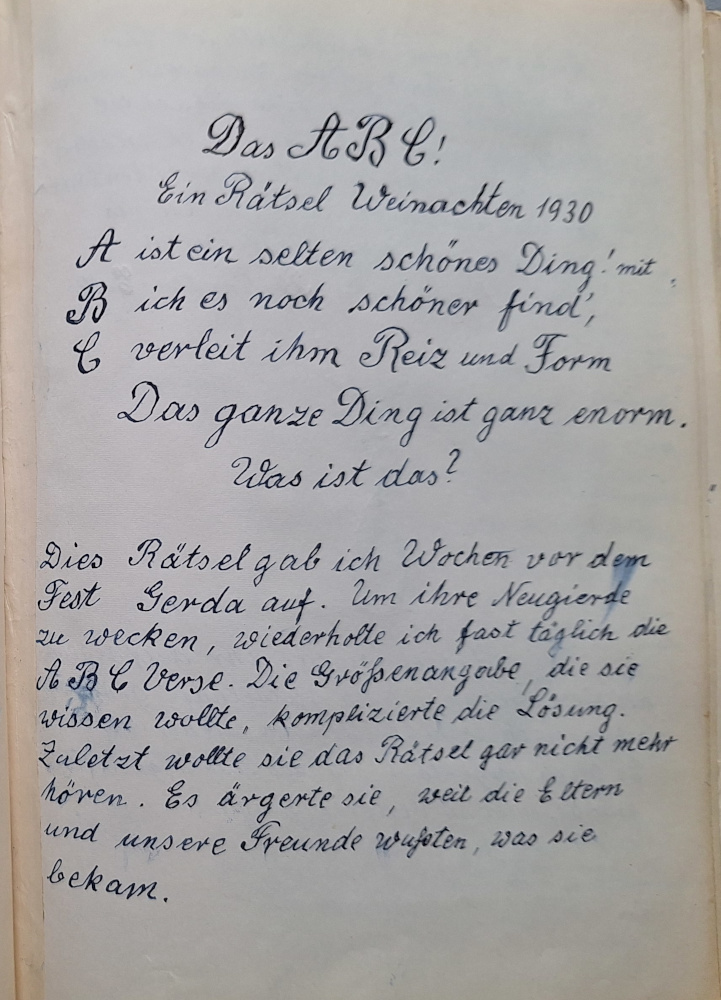 Das A B C!
Ein Rätsel Weinachten 1930
A ist ein selten schönes Ding! mit
B ich es noch schöner find',
C verleit ihm Reiz und Form
Das ganze Ding ist ganz enorm.
Was ist das?
Dies Rätsel gab ich Wochen vor dem
Fest Gerda auf. Um ihre Neugierde
zu wecken, wiederholte ich fast täglich die
A B C Verse. Die Größenangabe, die sie
wissen wollte, komplizierte die Lösung.
Zuletzt wollte sie das Rätsel gar nicht mehr
hören. Es ärgerte sie, weil die Eltern
und unsere Freunde wußten, was sie
bekam.